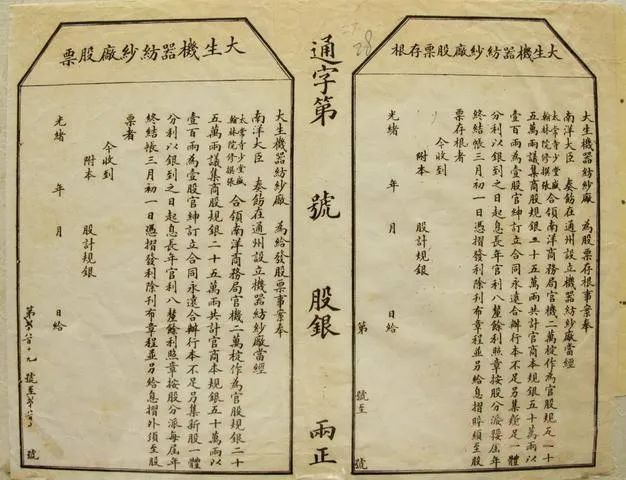 大生機器紡紗廠股票存根
大生機器紡紗廠 為股票存根事案奉
南洋大臣 奏飭在通州設立機器紡紗廠當經
太常寺少堂盛
翰林院修撰張
合領南洋商務局官機二萬椗作為官股規銀二十
五萬兩議集商股規銀二十五萬兩共計官商本規銀五十萬兩以
壹百兩為壹股官紳訂立合同永遠合辦行本不足另集新股一體
分利以銀到之日起息長年官利八釐餘利照章按股分派每屆年
終結帳三月初一日憑摺發利除刊布章程並另給息摺外須至股
票存根者
今收到
附本 股計規銀
光緒 年 月 日給
第 號至 號
通字第 號 股銀 兩正
大生機器紡紗廠股票
大生機器紡紗廠 為給發股票事案奉
南洋大臣 奏飭在通州設立機器紡紗廠當經
太常寺少堂盛
翰林院修撰張
合領南洋商務局官機二萬椗作為官股規銀二十
五萬兩議集商股規銀二十五萬兩共計官商本規銀五十萬兩以
壹百兩為壹股官紳訂立合同永遠合辦行本不足另集新股一體
分利以銀到之日起息長年官利八釐餘利照章按股分派每屆年
終結帳三月初一日憑摺發利除刊布章程並另給息摺外須至股
票者
今收到
附本 股計規銀
光緒 年 月 日給
第 號至 號